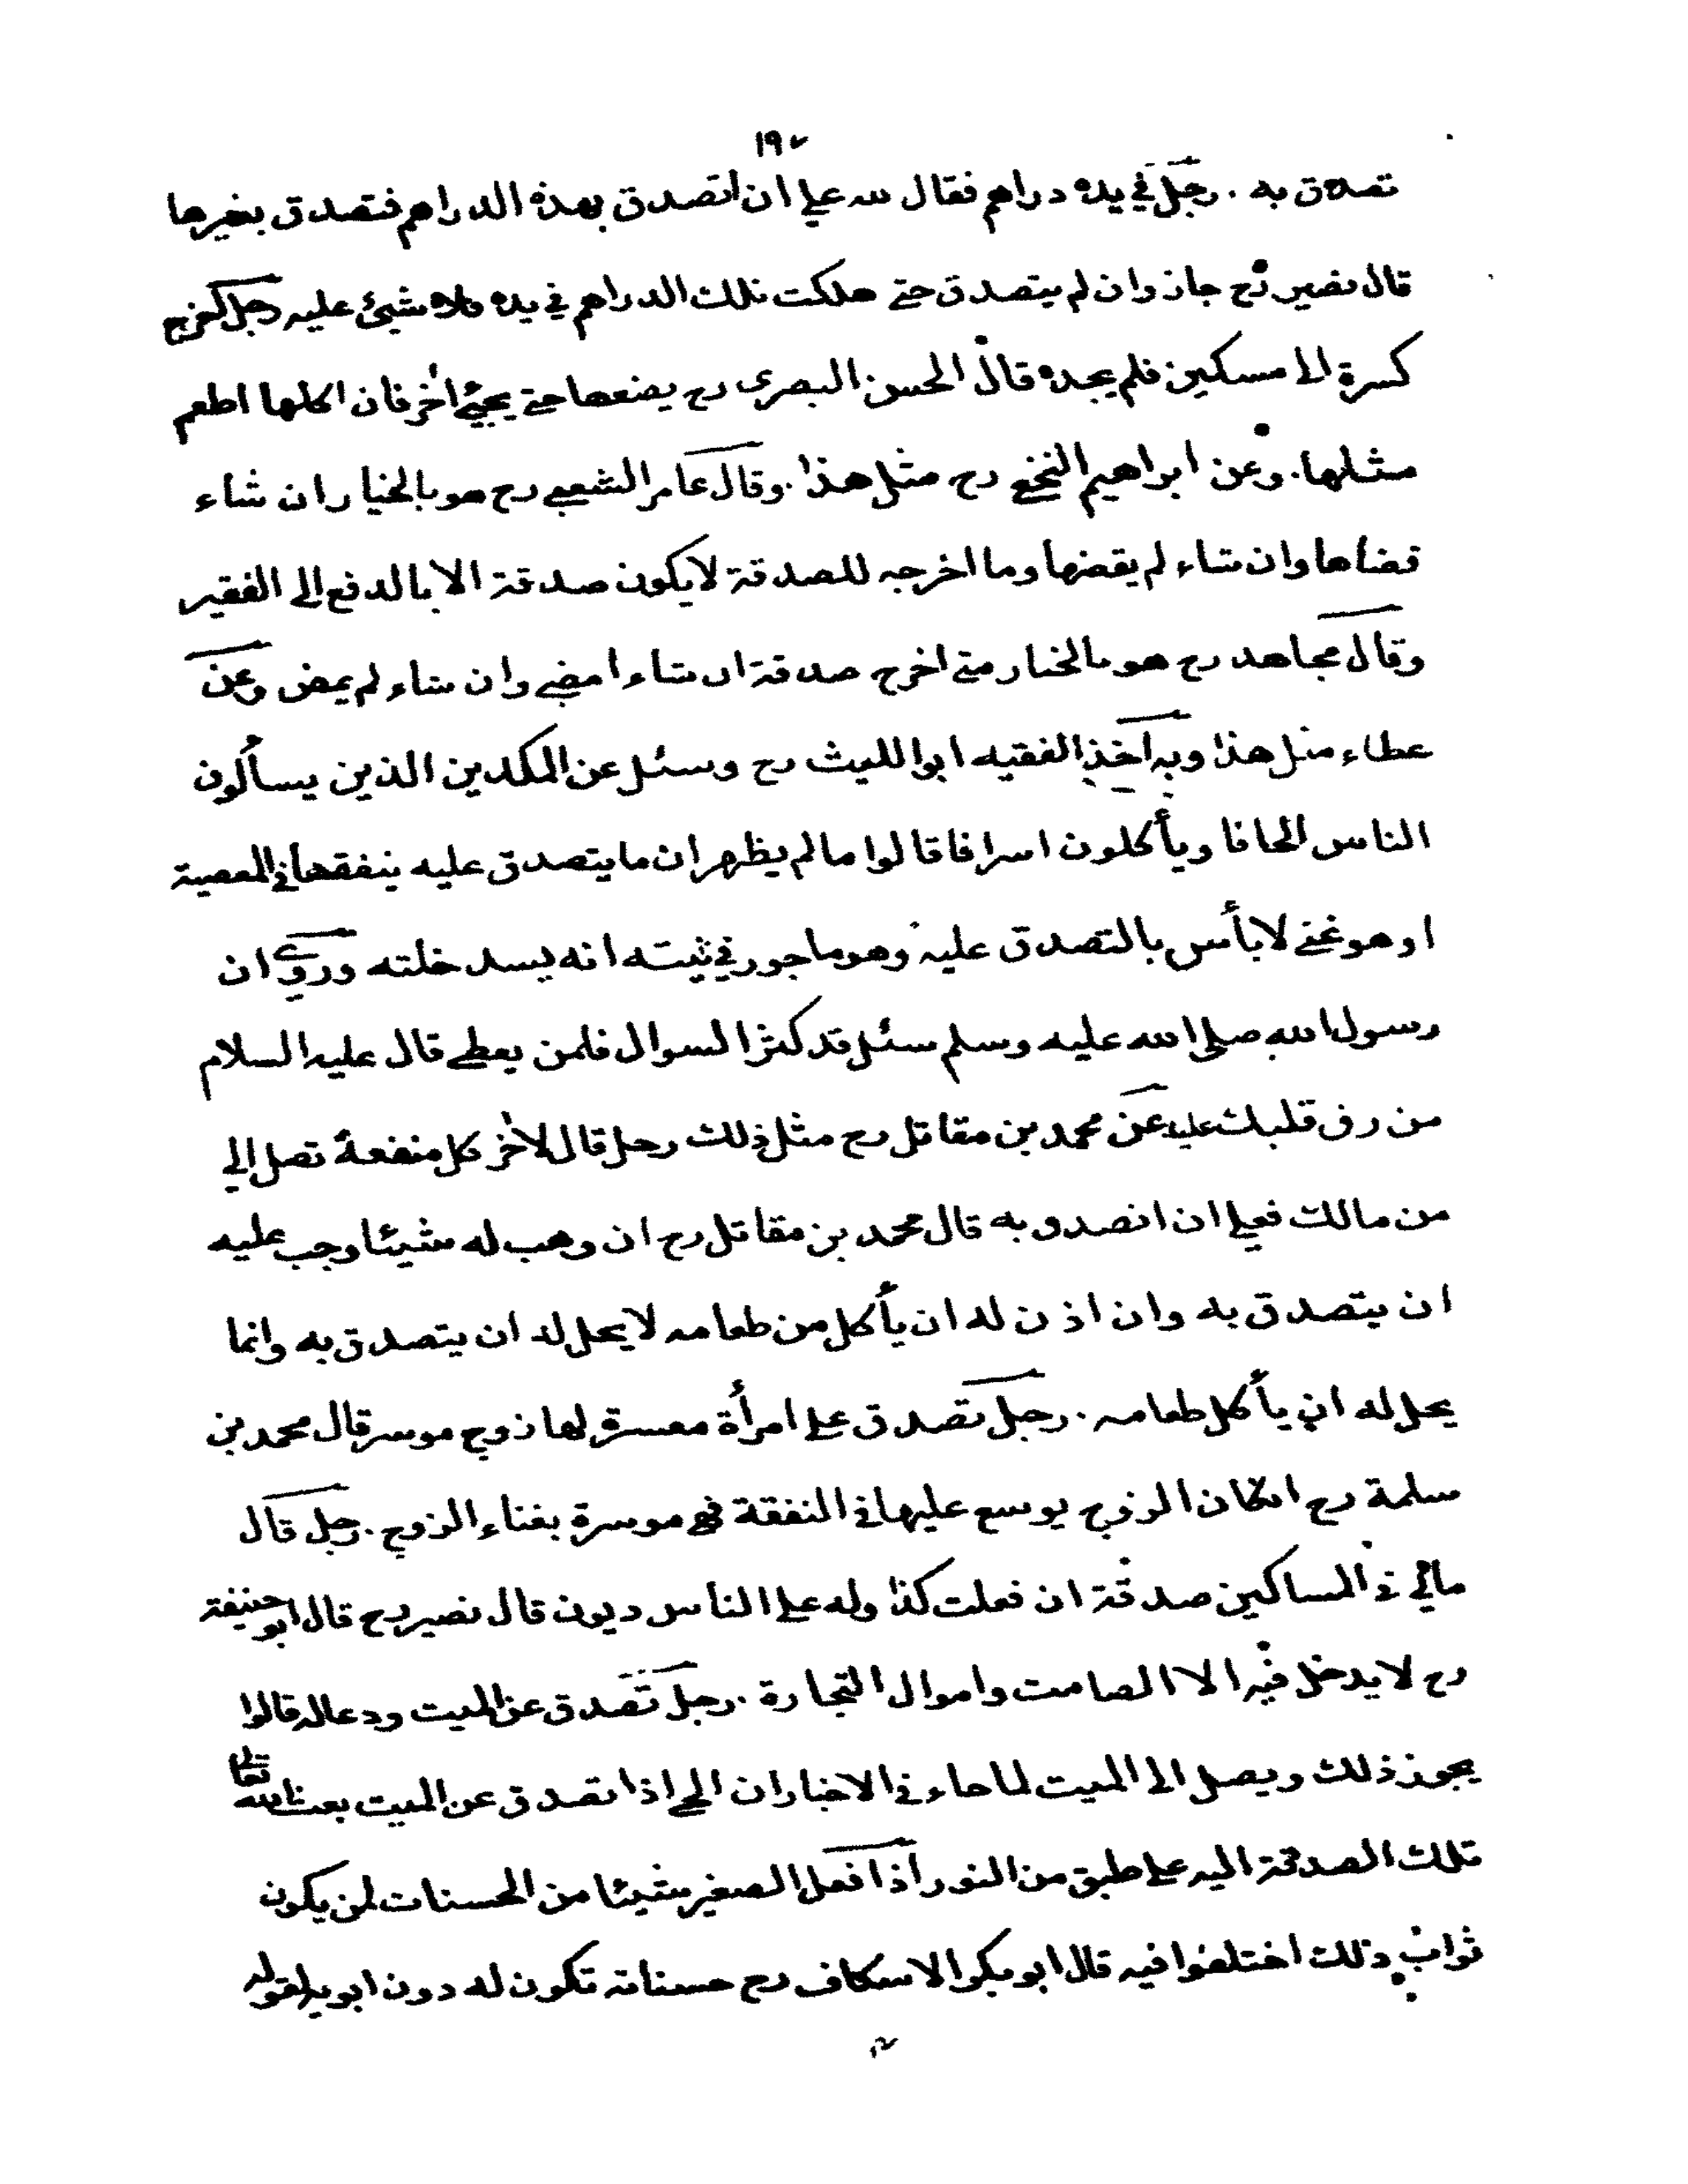 ١٩٧
تصدق به . رجل في يده دراهم فقال لله علي ان اتصدق بهذه الدراهم فتصدق بغيرها
قال نصير رح جاز وان لم يتصدق حتى هلكت تلك الدراهم في يده فلا شيئ عليه رجل اخرج
كسرة الى مسكين فلم يجده قال الحسن البصري رح يضعها حتى يجيئ اخر فان اكلها اطعم
مثلها . وعن ابراهيم النخعي رح مثل هذا . وقال عامر الشعبي رح هو بالخيار ان شاء
قضاها وان شاء لم يقضها وما اخرجه للصدقة لا يكون صدقة الا بالدفع الى الفقير
وقال مجاهد رح هو بالخيار متى اخرج صدقة ان شاء امضى وان شاء لم يمض وعن
عطاء مثل هذا وبه اخذ الفقيه ابو الليث رح وسئل عن المكدين الذين يسألون
الناس الحافا ويأكلون اسرافا قالوا ما لم يظهر ان ما يتصدق عليه ينفقها في المعصية
او هو غني لا بأس بالتصدق عليه وهو ماجور في نيته انه يسد خلته وروي ان
رسول الله صلى الله عليه وسلم سئل قد كثر السوال فلمن يعطى قال عليه السلام
من رق قلبك عليه عن محمد بن مقاتل رح مثل ذلك رجل قال لاخر كل منفعة تصل الي
من مالك فعلي ان اتصدق به قال محمد بن مقاتل رح ان وهب له شيئا وجب عليه
ان يتصدق به وان اذن له ان يأكل من طعامه لا يحل له ان يتصدق به وانما
يحل له ان يأكل طعامه . رجل تصدق على امرأة معسرة لها زوج موسر قال محمد بن
سلمة رح ان كان الزوج يوسع عليها في النفقة فهي موسرة بغناء الزوج . رجل قال
مالي في المساكين صدقة ان فعلت كذا وله على الناس ديون قال نصير رح قال ابو حنيفة
رح لا يدخل فيه الا الصامت واموال التجارة . رجل تصدق عن الميت ودعا له قالوا
يجوز ذلك ويصل الى الميت لما جاء في الاخبار ان الحي اذا تصدق عن الميت بعث الله تعالى
تلك الصدقة اليه على طبق من النور اذا فعل الصغير شيئا من الحسنات لمن يكون
ثواب ذلك اختلفوا فيه قال ابو بكر الاسكاف رح حسناته تكون له دون ابويه لقوله